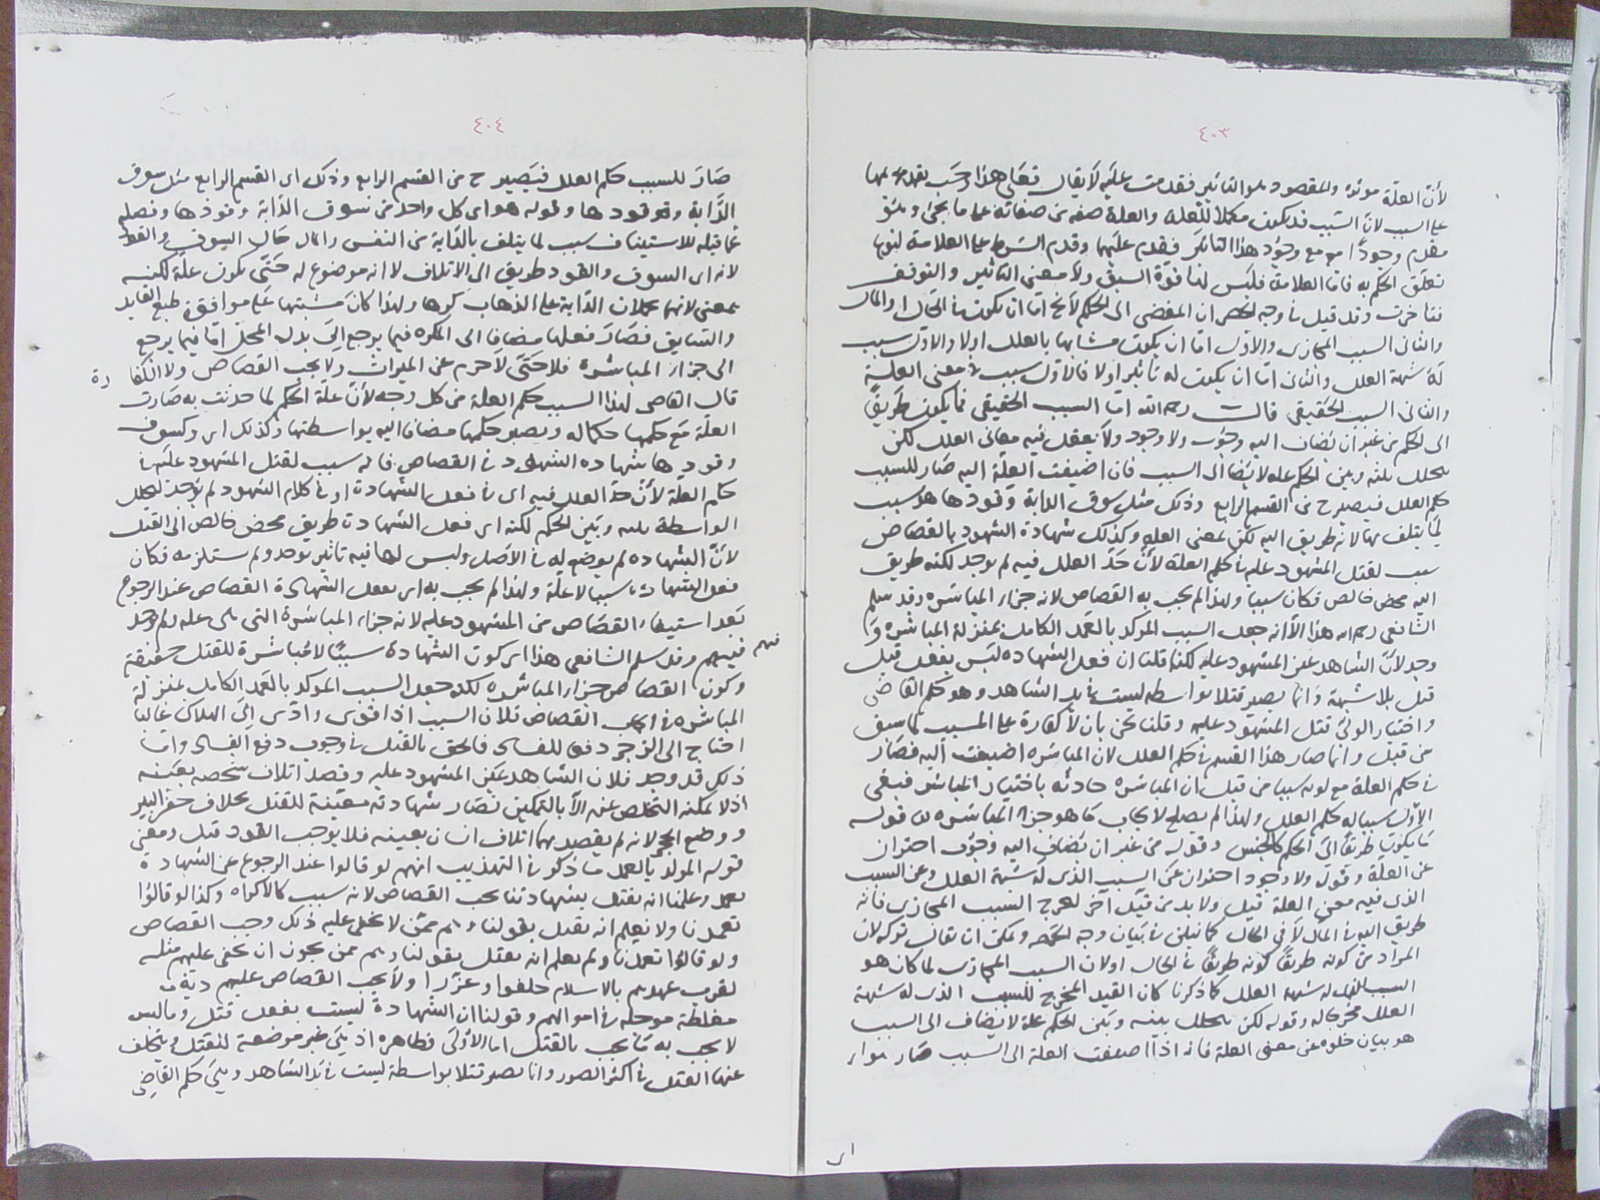 ٤٠٣
لأن العلة موثرة والمقصود هو التأثير فقدمت عليه لا يقال فعلى هذا وجب تقديمها
على السبب لأن السبب قد يكون مكملا للعلة والعلة صفة من صفاته على ما يجئ
مقدم وجودا مع وجود هذا التأثير فقدم عليهما وقدم الشرط على العلامة لنوع
تعلق الحكم به فاما العلامة فليس لها قوة السبق ولا معنى التأثير والتوقف
فتأخرت وقد قيل في وجه الحصر ان المفضى الى الحكم لا يخ اما ان يكون في الحال او المال
والثاني السبب المجازى والاول اما ان يكون مشابها بالعلل اولا والاول سبب
له شبهة العلل والثاني اما ان يكون له تأثير اولا فالاول سبب في معنى العلة
والثاني السبب الحقيقي قال رحمه الله اما السبب الحقيقي فما يكون طريقا
الى الحكم من غير ان يضاف اليه وجوب ولا وجود ولا يعقل فيه معاني العلل لكن
يتخلل بينه وبين الحكم علة لا يضاف الى السبب فان اضيفت العلة اليه صار للسبب
حكم العلل فيصير ح من القسم الرابع وذلك مثل سوق الدابة وقودها هو سبب
لما يتلف بها لانه طريق اليه لكن بمعنى العلة وكذلك شهادة الشهود بالقصاص
سبب لقتل المشهود عليه في حكم العلة لأن حد العلل فيه لم يوجد لكنه طريق
اليه محض خالص فكان سببا ولهذا لم يجب به القصاص لانه جزاء المباشرة وقد سلم
الشافعي رحمه الله هذا الا انه جعل السبب الموكد بالعمد الكامل بمنزلة المباشرة و
وجد لأن الشاهد عين المشهود عليه لكنا قلنا ان فعل الشهادة ليس بفعل قتل
قتل بلا شبهة وانما يصير قتلا بواسطة ليست في يد الشاهد وهو حكم القاضي
واختيار الولي قتل المشهود عليه وقلنا نحن بان لا كفارة على المسبب لما سبق
من قبل وانما صار هذا القسم في حكم العلل لان المباشرة اضيفت اليه فصار
في حكم العلة مع كونه سببا من قبل ان المباشرة حادثة باختيار المباشر فبقى
الاول سببا له حكم العلل ولهذا لم يصلح لايجاب ما هو جزاء المباشرة قوله
ما يكون طريقا الى الحكم كالجنس وقوله من غير ان يضاف اليه وجوب احتراز
عن العلة وقوله ولا وجود احتراز عن السبب الذى له شبهة العلل وعن السبب
الذى فيه معنى العلة قيل ولا بد من قيد آخر ليخرج السبب المجازى فانه
طريق اليه في المال لا في الحال كما قيل في بيان وجه الحصر ويمكن ان يقال تركه لان
المراد من كونه طريقا كونه طريقا في الحال اولان السبب المجازى لما كان هو
السبب الذى له شبهة العلل كما ذكرنا كان القيد المخرج للسبب الذى له شبهة
العلل مخرجا له وقوله لكن يتخلل بينه وبين الحكم علة لا يضاف الى السبب
هو بيان خلوه عن معنى العلة فانه اذا اضيفت العلة الى السبب صار
اى
٤٠٤
صار للسبب حكم العلل فيصير ح من القسم الرابع وذلك اى القسم الرابع مثل سوق
الدابة وقودها وقوله هو اى كل واحد من سوق الدابة وقودها وفصله
عما قبله للاستيناف سبب لما يتلف بالدابة من النفس والمال حال السوق والقود
لانه اى السوق والقود طريق الى الاتلاف لا انه موضوع له حتى يكون علة لكنه
بمعنى لانهما يحملان الدابة على الذهاب كرها ولهذا كان مشيتها على موافقة طبع القايد
والسايق فصار فعلها مضافا الى المكره فيما يرجع الى بدل المحل اما فيما يرجع
الى جزاء المباشرة فلا حتى لا يحرم عن الميراث ولا يجب القصاص ولا الكفا رة
قال القاضي لهذا السبب حكم العلة من كل وجه لأن علة الحكم لما حدثت به صارت
العلة مع حكمها حكما له ويصير حكمها مضافا اليه بواسطتها وكذلك اى وكسوق
وقودها شهادة الشهود في القصاص فانه سبب لقتل المشهود عليه في
حكم العلة لأن حد العلل فيه اى في فعل الشهادة او في كلام الشهود لم يوجد لتخلل
الواسطة بينه وبين الحكم لكنه اى فعل الشهادة طريق محض خالص الى القتل
لأن الشهادة لم يوضع له في الاصل وليس لها فيه تأثير يوجد ولم يستلزمه فكان
فعل الشهادة سببا لا علة ولهذا لم يجب به اى بفعل الشهادة القصاص عند الرجوع
بعد استيفاء القصاص من المشهود عليه لانه جزاء المباشرة التي هي علة ولم يوجد
منهم وقد سلم الشافعي هذا اى كون الشهادة سببا لا مباشرة للقتل حقيقة
وكون القصاص جزاء المباشرة لكنه جعل السبب الموكد بالعمد الكامل بمنزلة
المباشرة في ايجاب القصاص فلان السبب اذا قوى وادى الى الهلاك غالبا
احتاج الى الزجر دفعا للفساد فالحق بالقتل في وجوب دفع الفساد واما
ذلك قد وجد فلان الشاهد عين المشهود عليه وقصد اتلاف شخصه بعينه
اذ لا يمكنه التخلص عنه الا بالتمكين فصار شهادته معينة للقتل بخلاف حفر البير
ووضع الحجر لانه لم يقصد بهما اتلاف انسان بعينه فلا يوجب القود قيل ومعنى
قوله الموكد بالعمد ما ذكر في التهذيب انهم لو قالوا عند الرجوع عن الشهادة
تعمدنا وعلمنا انه يقتل بشهادتنا يجب القصاص لانه سبب كالاكراه وكذا لو قالوا
تعمدنا ولا نعلم انه يقتل بقولنا وهم ممن لا يخفى عليه ذلك وجب القصاص
ولو قالوا تعمدنا ولم نعلم انه يقتل بقولنا وهم ممن يجوز ان يخفى عليهم مثله
لقرب عهدهم بالاسلام حلفوا وعزروا ولا يجب القصاص عليهم دية
مغلظة موجلة في اموالهم وقولنا ان الشهادة ليست بفعل قتل وما ليس
لا يجب به ما يجب بالقتل اما الاولى فظاهرة اذ هي غير موضعة للقتل ويتخلف
عنها القتل في اكثر الصور وانما يصير قتلا بواسطة ليست في يد الشاهد وهي حكم القاضي